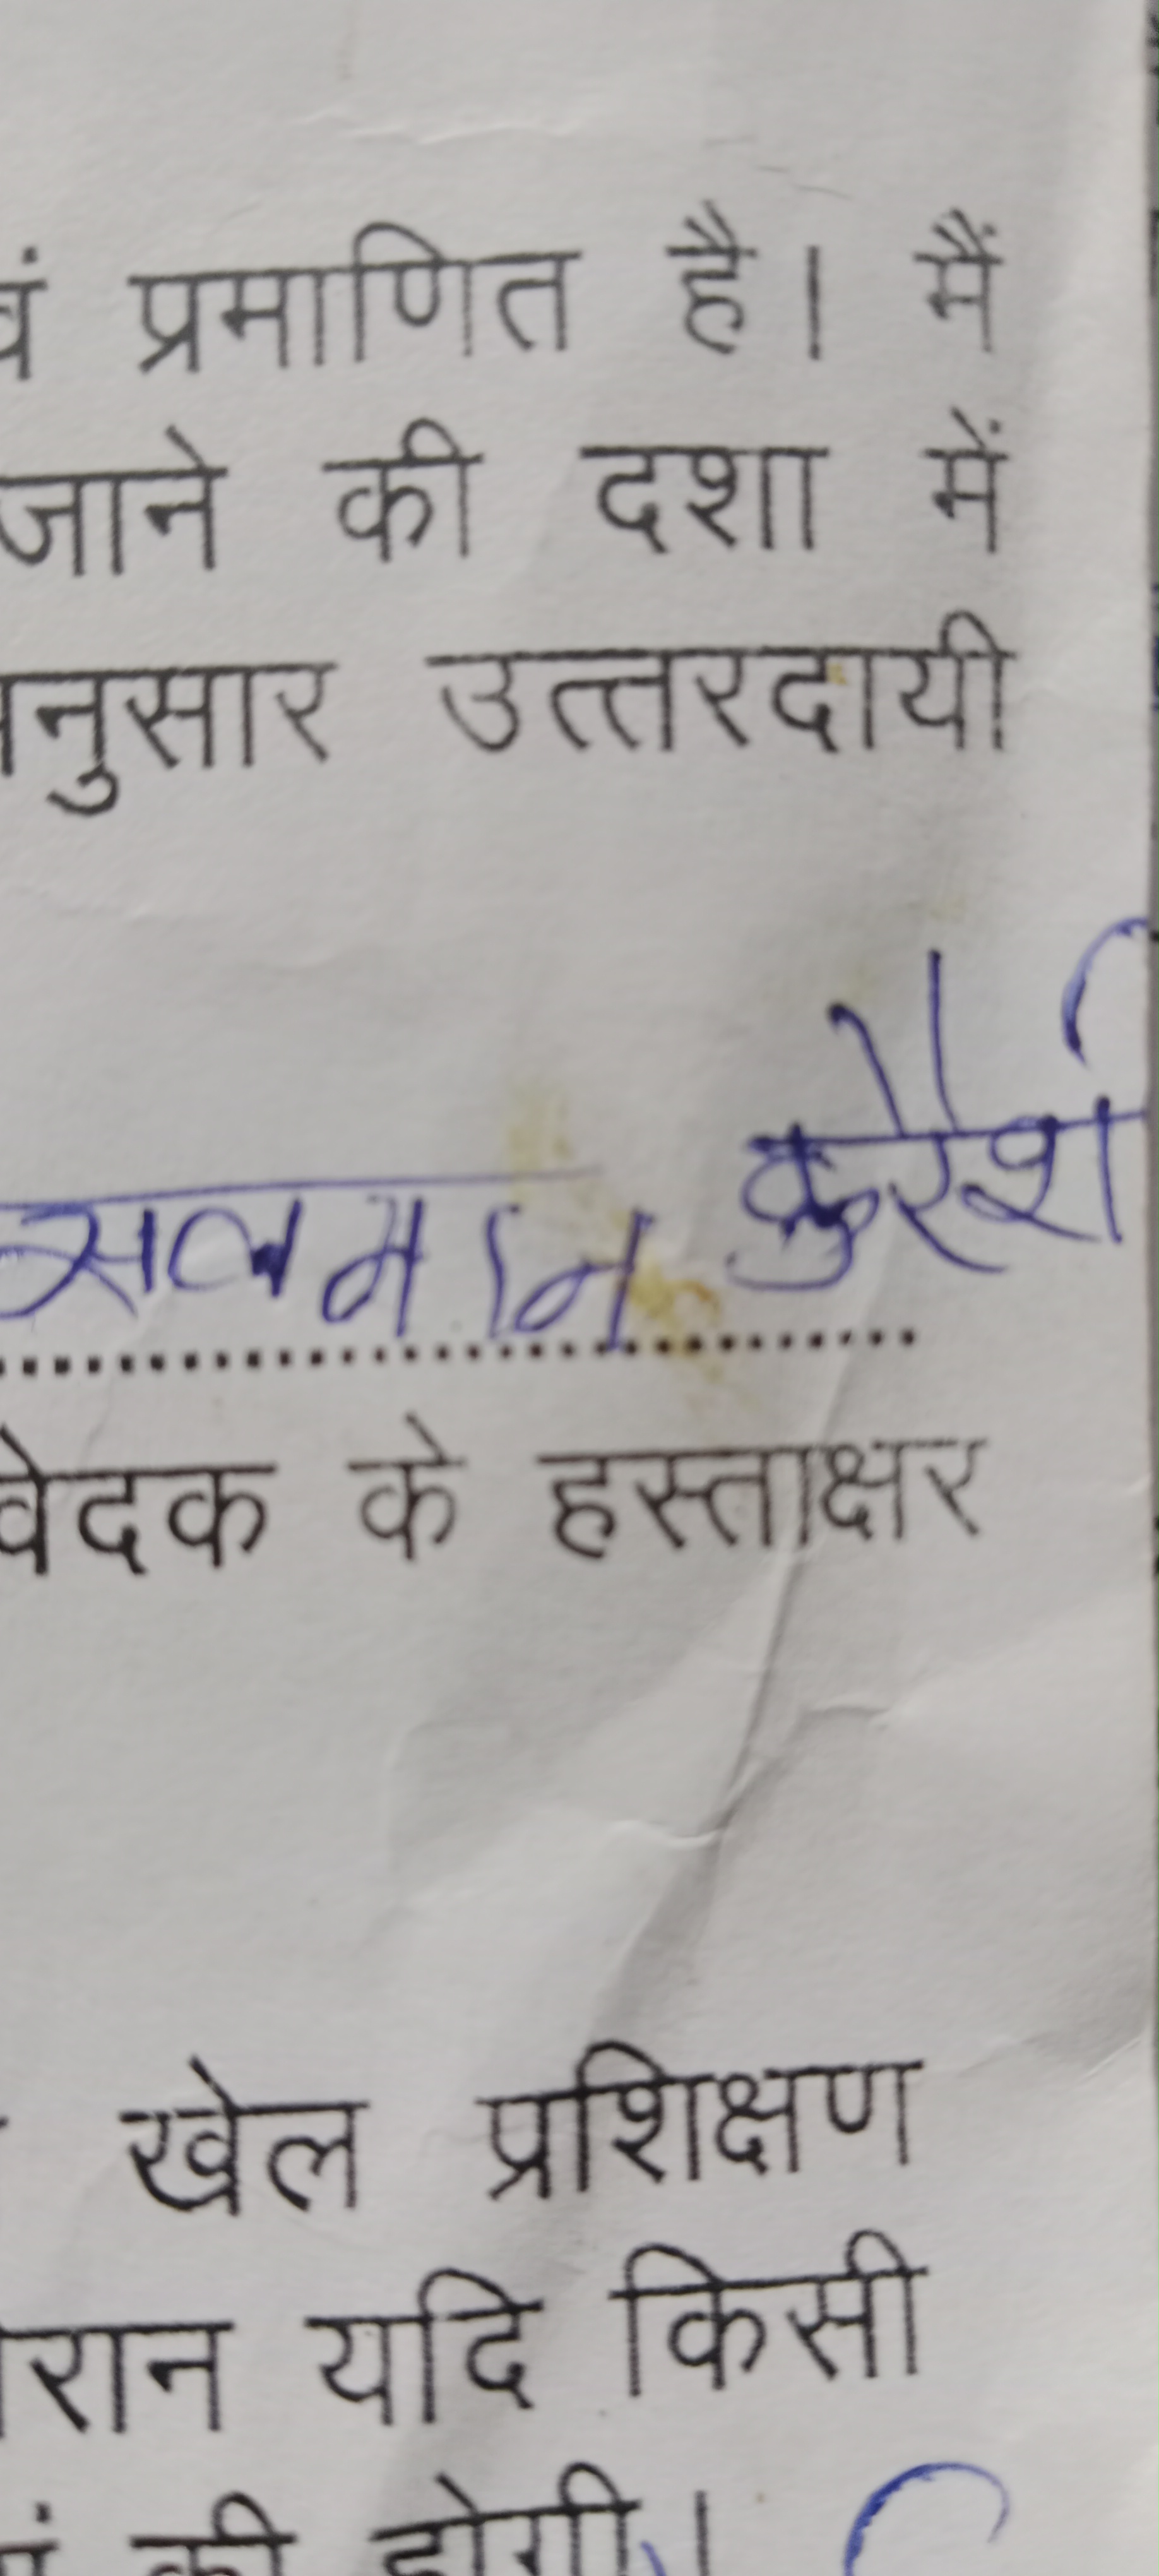 वं प्रमाणित है। मैं
जाने की दशा में
नुसार उत्तरदायी
सलमान कुरैशी
वेदक के हस्ताक्षर
खेल प्रशिक्षण
रान यदि किसी
की होगी।